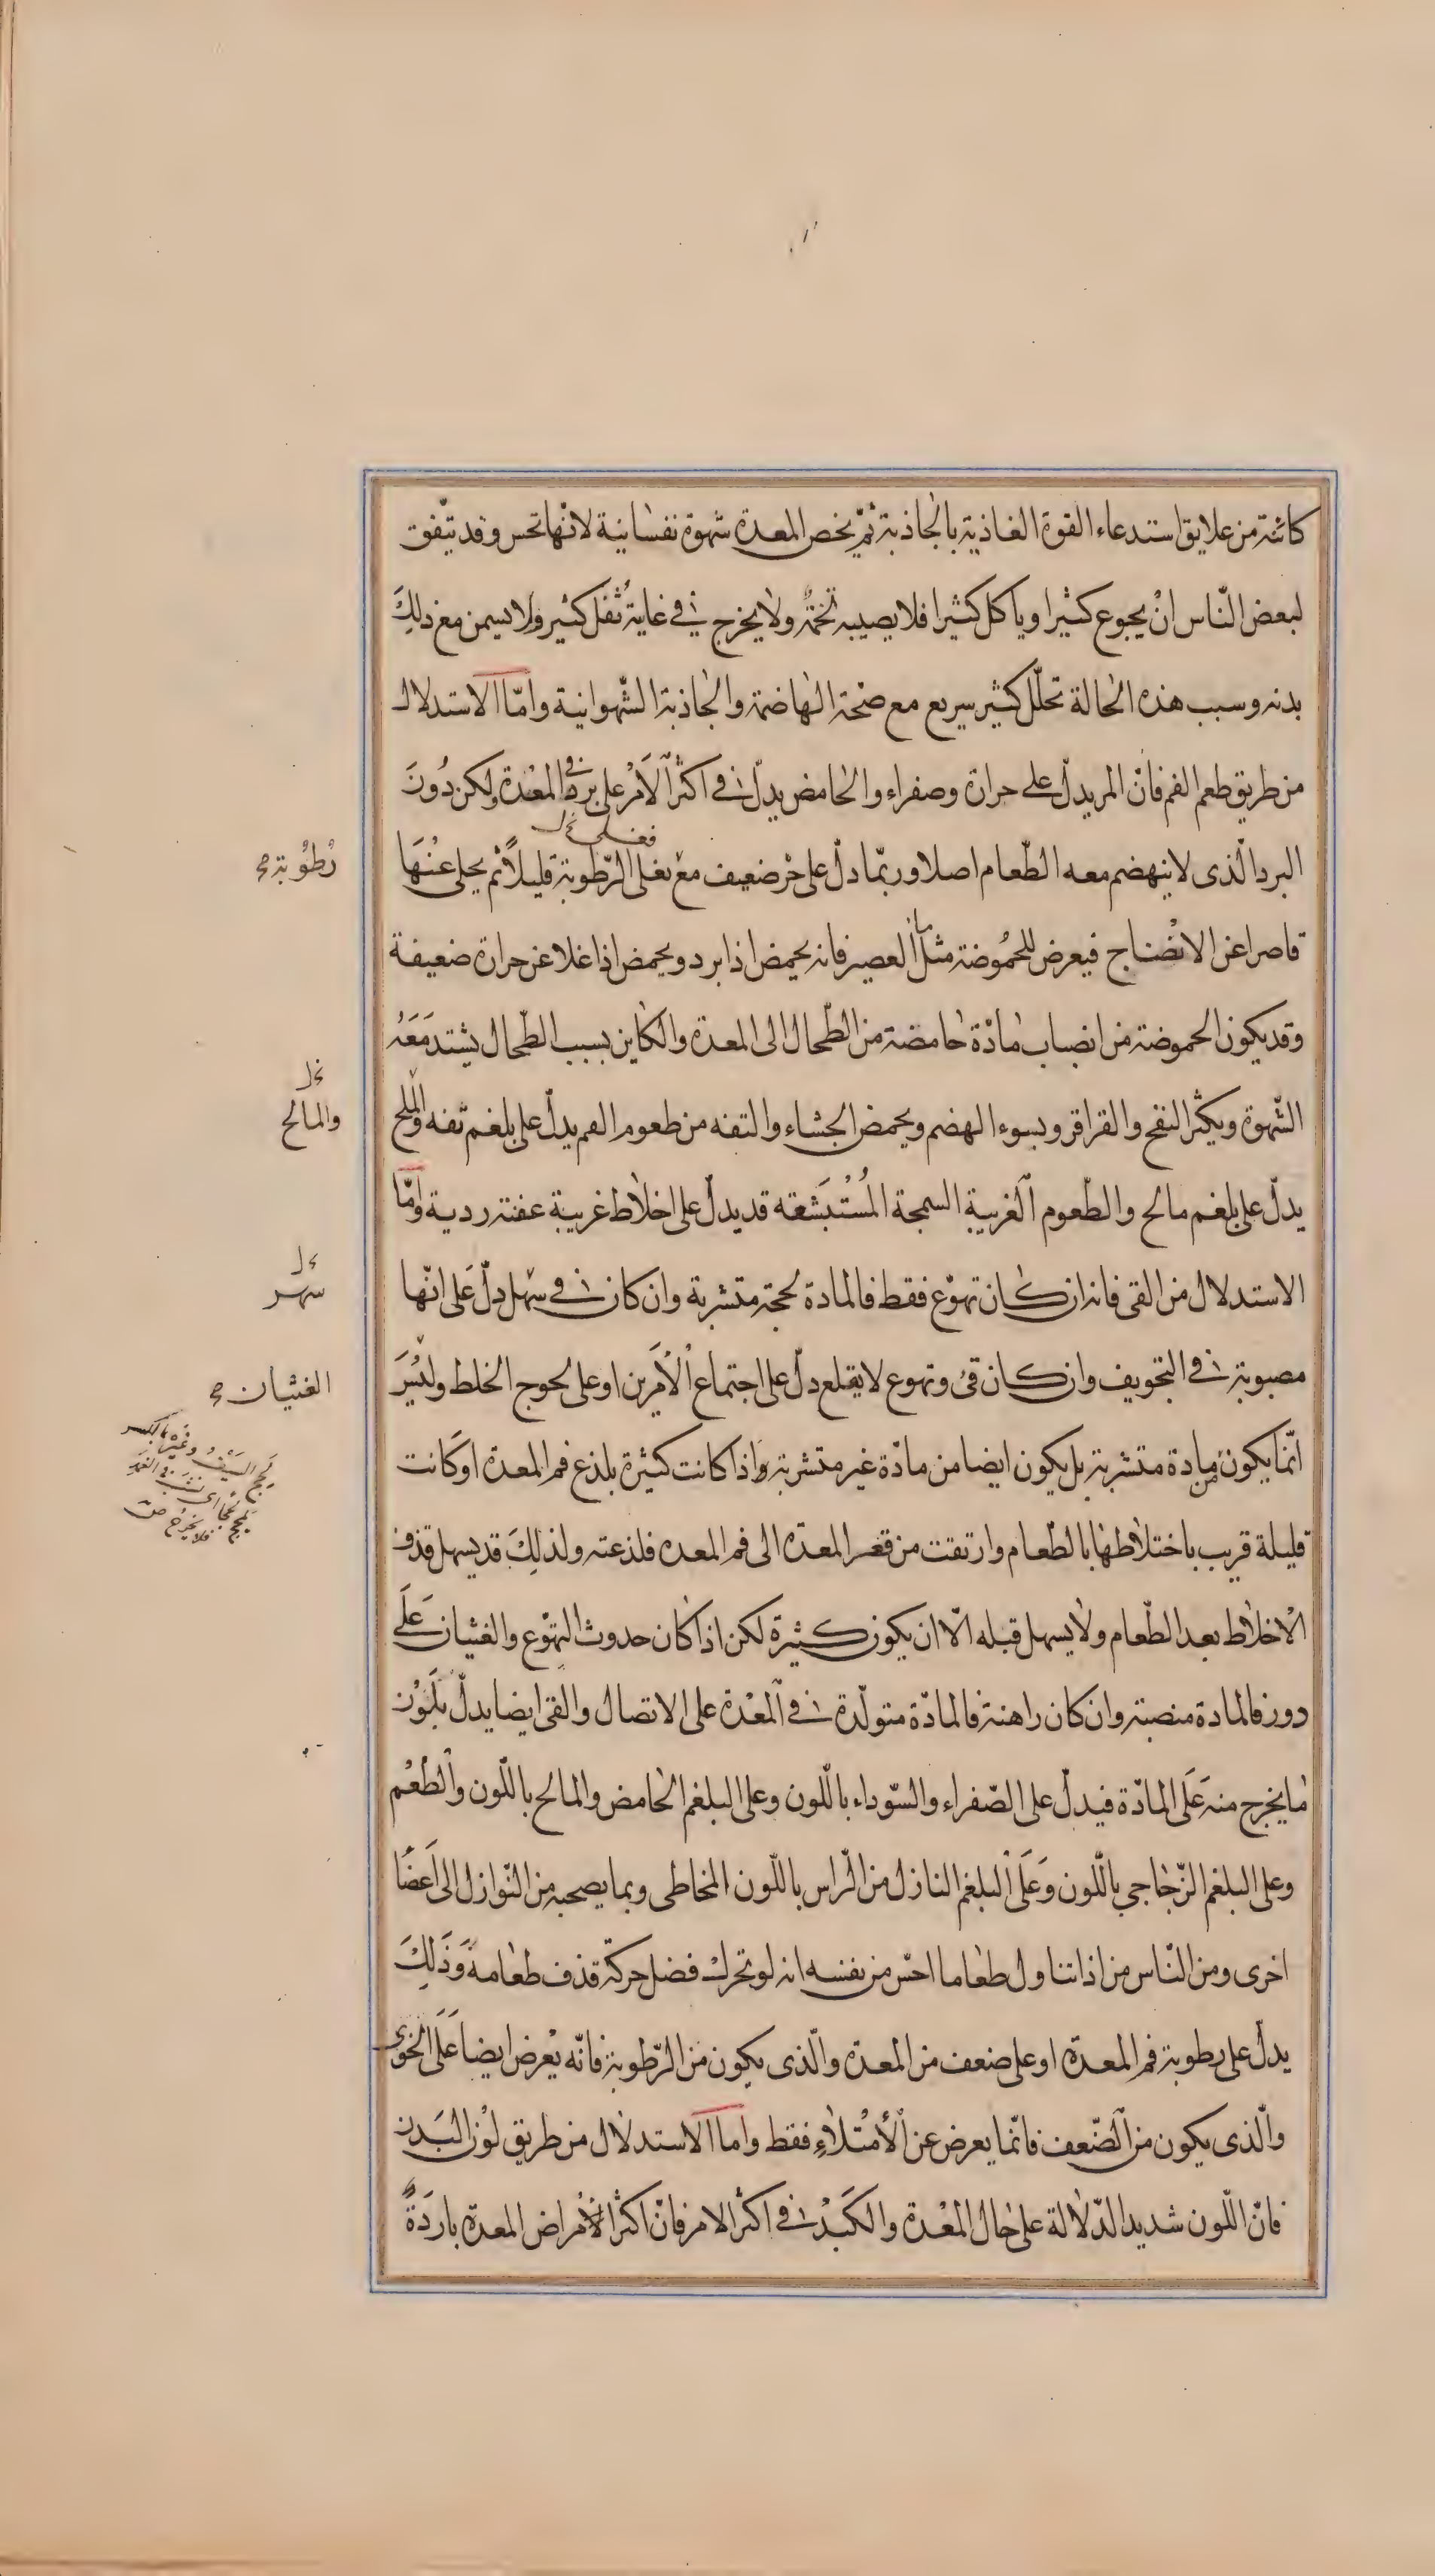 كائنة من علايق استدعاء القوة الغاذية بالجاذبة ثم يخص المعدة شهوة نفسانية لانها تحس وقد يتفق
لبعض الناس ان يجوع كثيرا وياكل كثيرا فلا يصيبه تخمة ولا يخرج في غاية ثفل كثير ولا يسمن مع ذلك
بدنه وسبب هذه الحالة تحلل كثير سريع مع صحة الهاضمة والجاذبة الشهوانية واما الاستدلال
من طريق طعم الفم فان المر يدل على حرارة وصفراء والحامض يدل في اكثر الامر على برد في المعدة ولكن دون
البرد الذى لا ينهضم معه الطعام اصلا وربما دل على حر ضعيف مع تغلى الرطوبة قليلا ثم يحلى عنها
فغلى
رطوبة
قاصرا عن الانضاج فيعرض للحموضة مثل ما العصير فانه يحمض اذا برد ويحمض اذا غلا عن حرارة ضعيفة
وقد يكون الحموضة من انصباب مادة حامضة من الطحال الى المعدة والكاين بسبب الطحال يشتد معه
الشهوة ويكثر النفخ والقراقر ويسوء الهضم ويحمض الجشاء والتفه من طعوم الفم يدل على بلغم تفه والملح
والمالح
يدل على بلغم مالح والطعوم الغريبة السمجة المستبشعه قد يدل على اخلاط غريبة عفنة ردية واما
الاستدلال من القى فانه ان كان تهوع فقط فالمادة لحجة متشربة وان كان في سهل دل على انها
سهر
مصبوبة في التجويف وان كان قئ وتهوع لا يقلع دل على اجتماع الامرين او على لحوج الخلط وليس
الغثيان
انما يكون من مادة متشربة بل يكون ايضا من مادة غير متشربة واذا كانت كثيرة يلذع فم المعدة او كانت
قليلة قريب باختلاطها بالطعام وارتقت من قعر المعدة الى فم المعده فلذعته ولذلك قد يسهل قذف
الاخلاط بعد الطعام ولا يسهل قبله الا ان يكون كثيرة لكن اذا كان حدوث التهوع والغثيان على
دور فالمادة منصبة وان كان راهنة فالمادة متولدة في المعدة على الاتصال والقى ايضا يدل بلون
ما يخرج منه على المادة فيدل على الصفراء والسوداء باللون وعلى البلغم الحامض والمالح باللون والطعم
وعلى البلغم الزجاجي باللون وعلى البلغم النازل من الراس باللون المخاطى وبما يصحبه من النوازل الى اعضا
اخرى ومن الناس من اذا تناول طعاما احس من نفسه انه لو تحرك فضل حركة قذف طعامه وذلك
يدل على رطوبة فم المعدة او على ضعف من المعدة والذى يكون من الرطوبة فانه يعرض ايضا على الخوى
والذى يكون من الضعف فانما يعرض عن الامتلاء فقط واما الاستدلال من طريق لون البدن
فان اللون شديد الدلالة على حال المعدة والكبد في اكثر الامر فان اكثر الامراض المعدة باردة